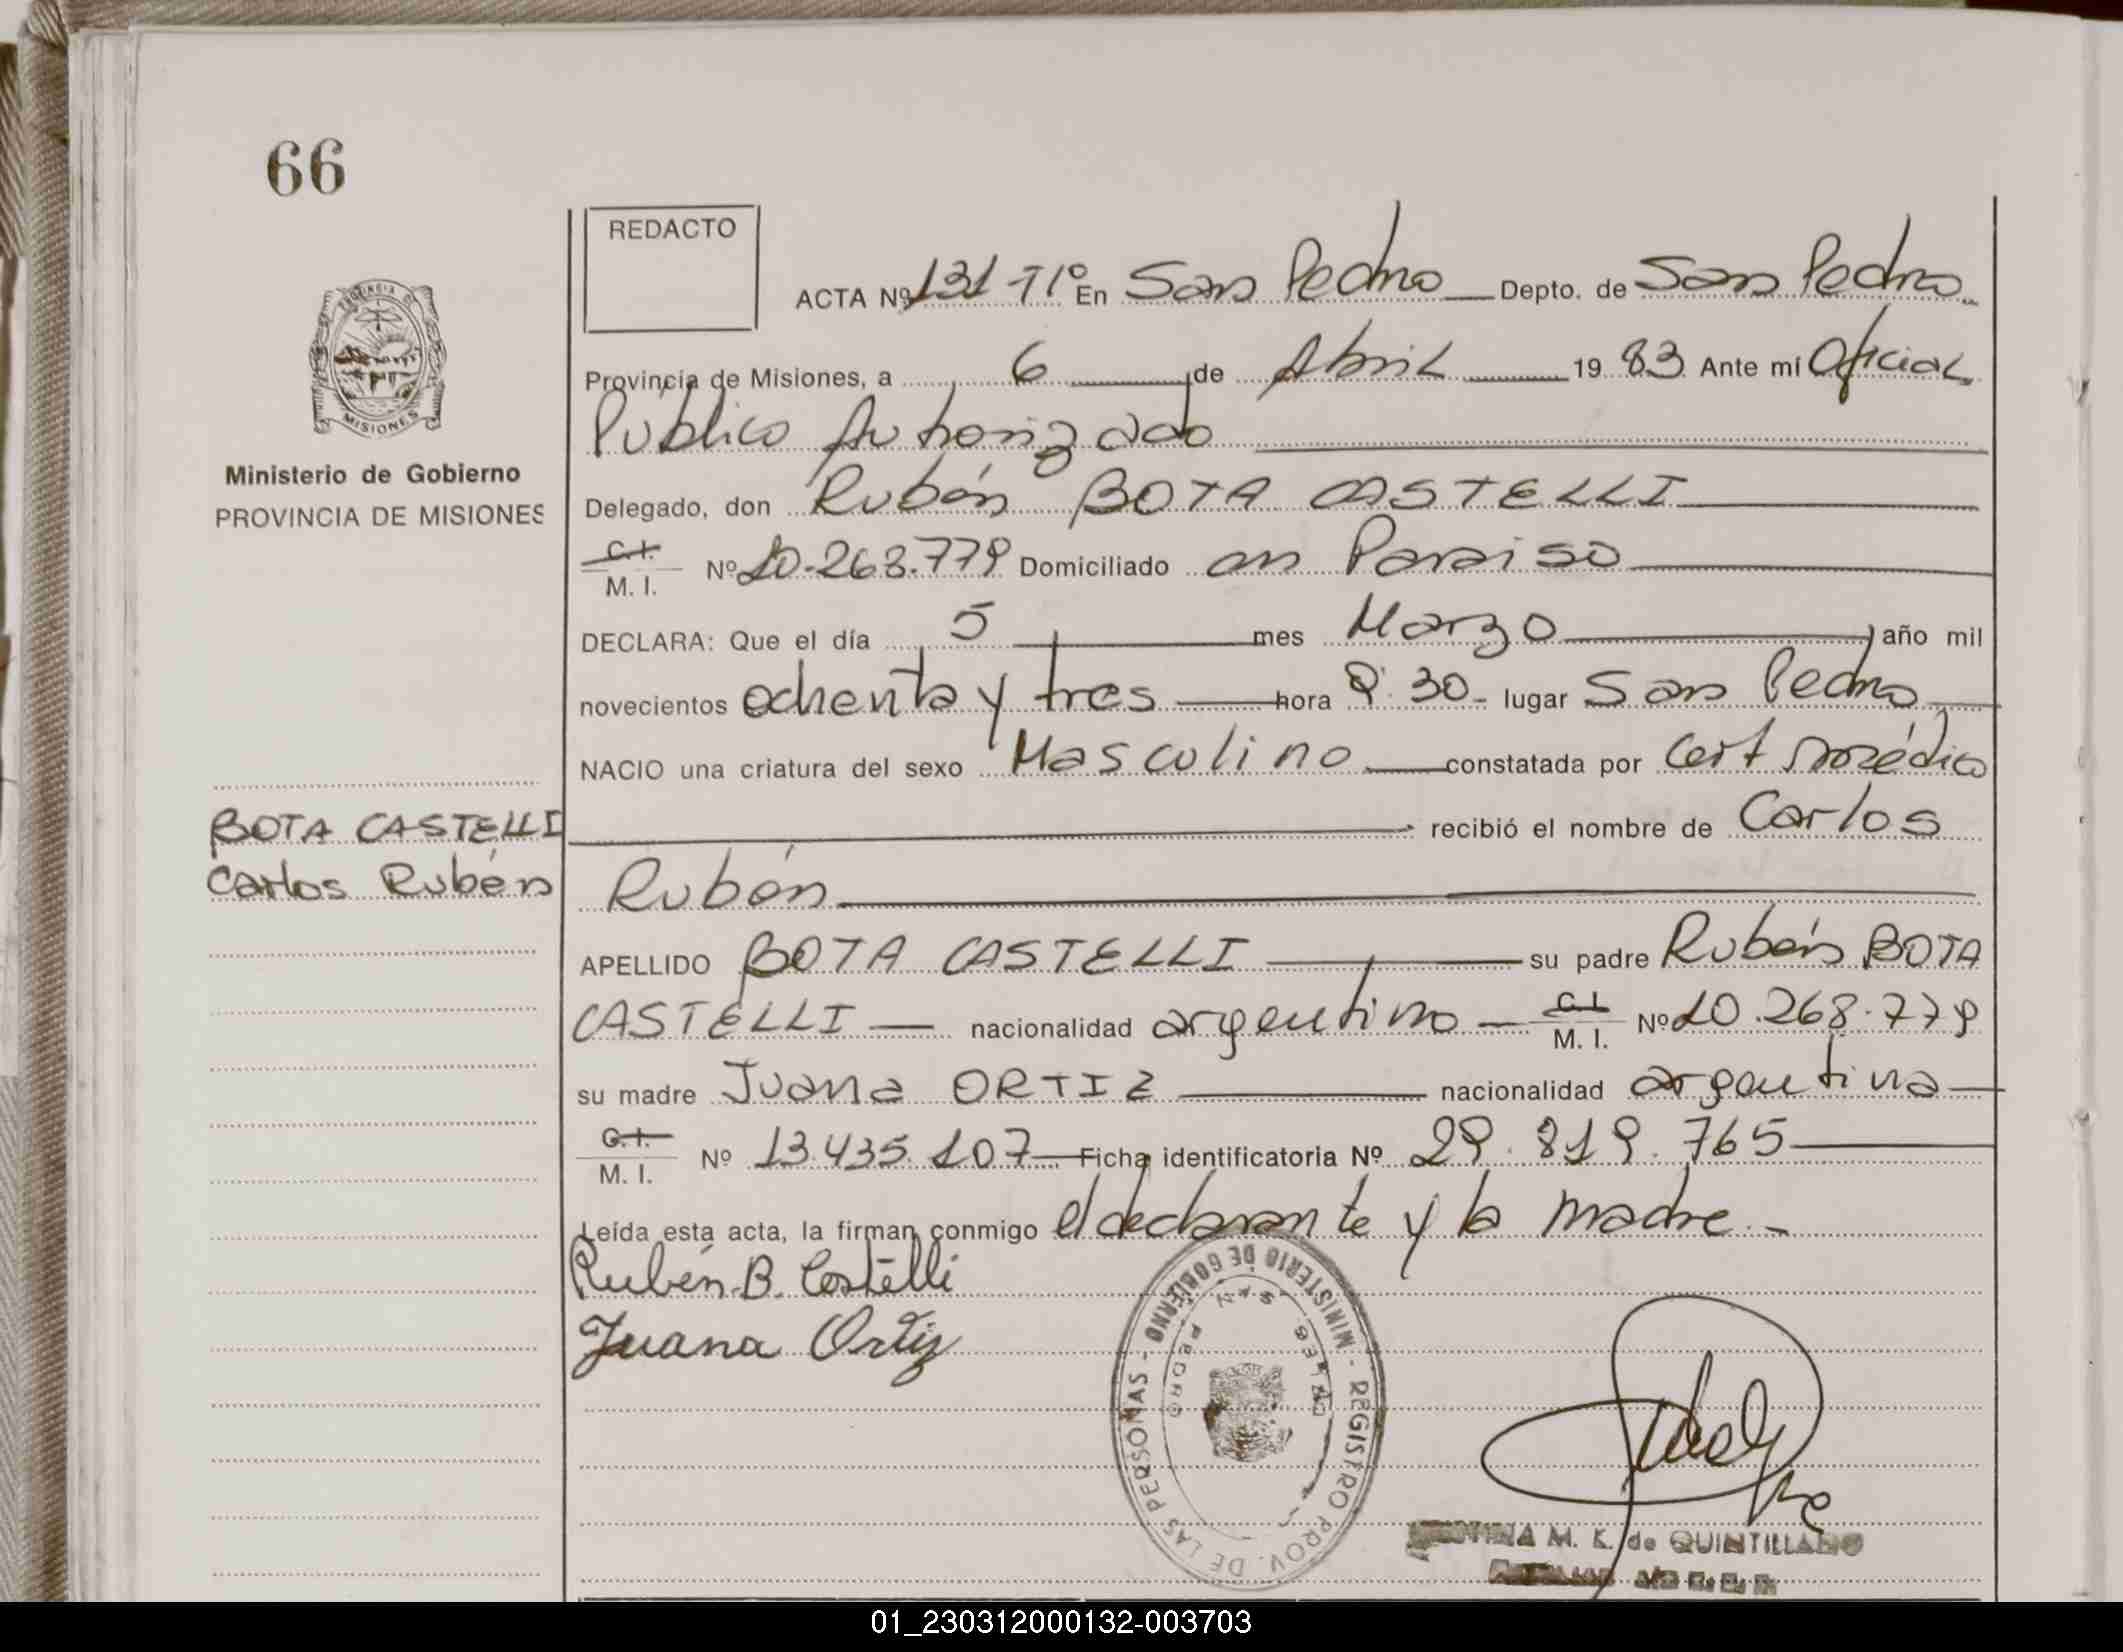 66
REDACTO
ACTA Nº 131 Tº I En San Pedro Depto. de San Pedro
Provincia de Misiones, a 6 de Abril 19 83 Ante mí Oficial
Público Autorizado
Delegado, don Rubén BOTA CASTELLI
C.I.
M. I. Nº 10.268.779 Domiciliado en Paraiso
DECLARA: Que el día 5 mes Marzo año mil
novecientos ochenta y tres hora 8:30 lugar San Pedro
NACIO una criatura del sexo Masculino constatada por Cert médico
recibió el nombre de Carlos
Rubén
APELLIDO BOTA CASTELLI su padre Rubén BOTA
CASTELLI nacionalidad argentino C.I. M. I. Nº 10.268.779
su madre Juana ORTIZ nacionalidad argentina
C.I.
M. I. Nº 13.435.107 Ficha identificatoria Nº 29.819.765
Leída esta acta, la firman conmigo el declarante y la madre.-
Rubén B. Castelli
Juana Ortiz
PROVINCIA DE
MISIONES
Ministerio de Gobierno
PROVINCIA DE MISIONES
BOTA CASTELLI
Carlos Rubén
MINISTERIO DE GOBIERNO - REGISTRO PROV. DE LAS PERSONAS -
SAN PEDRO
M. K. de QUINTILLANO
01_230312000132-003703